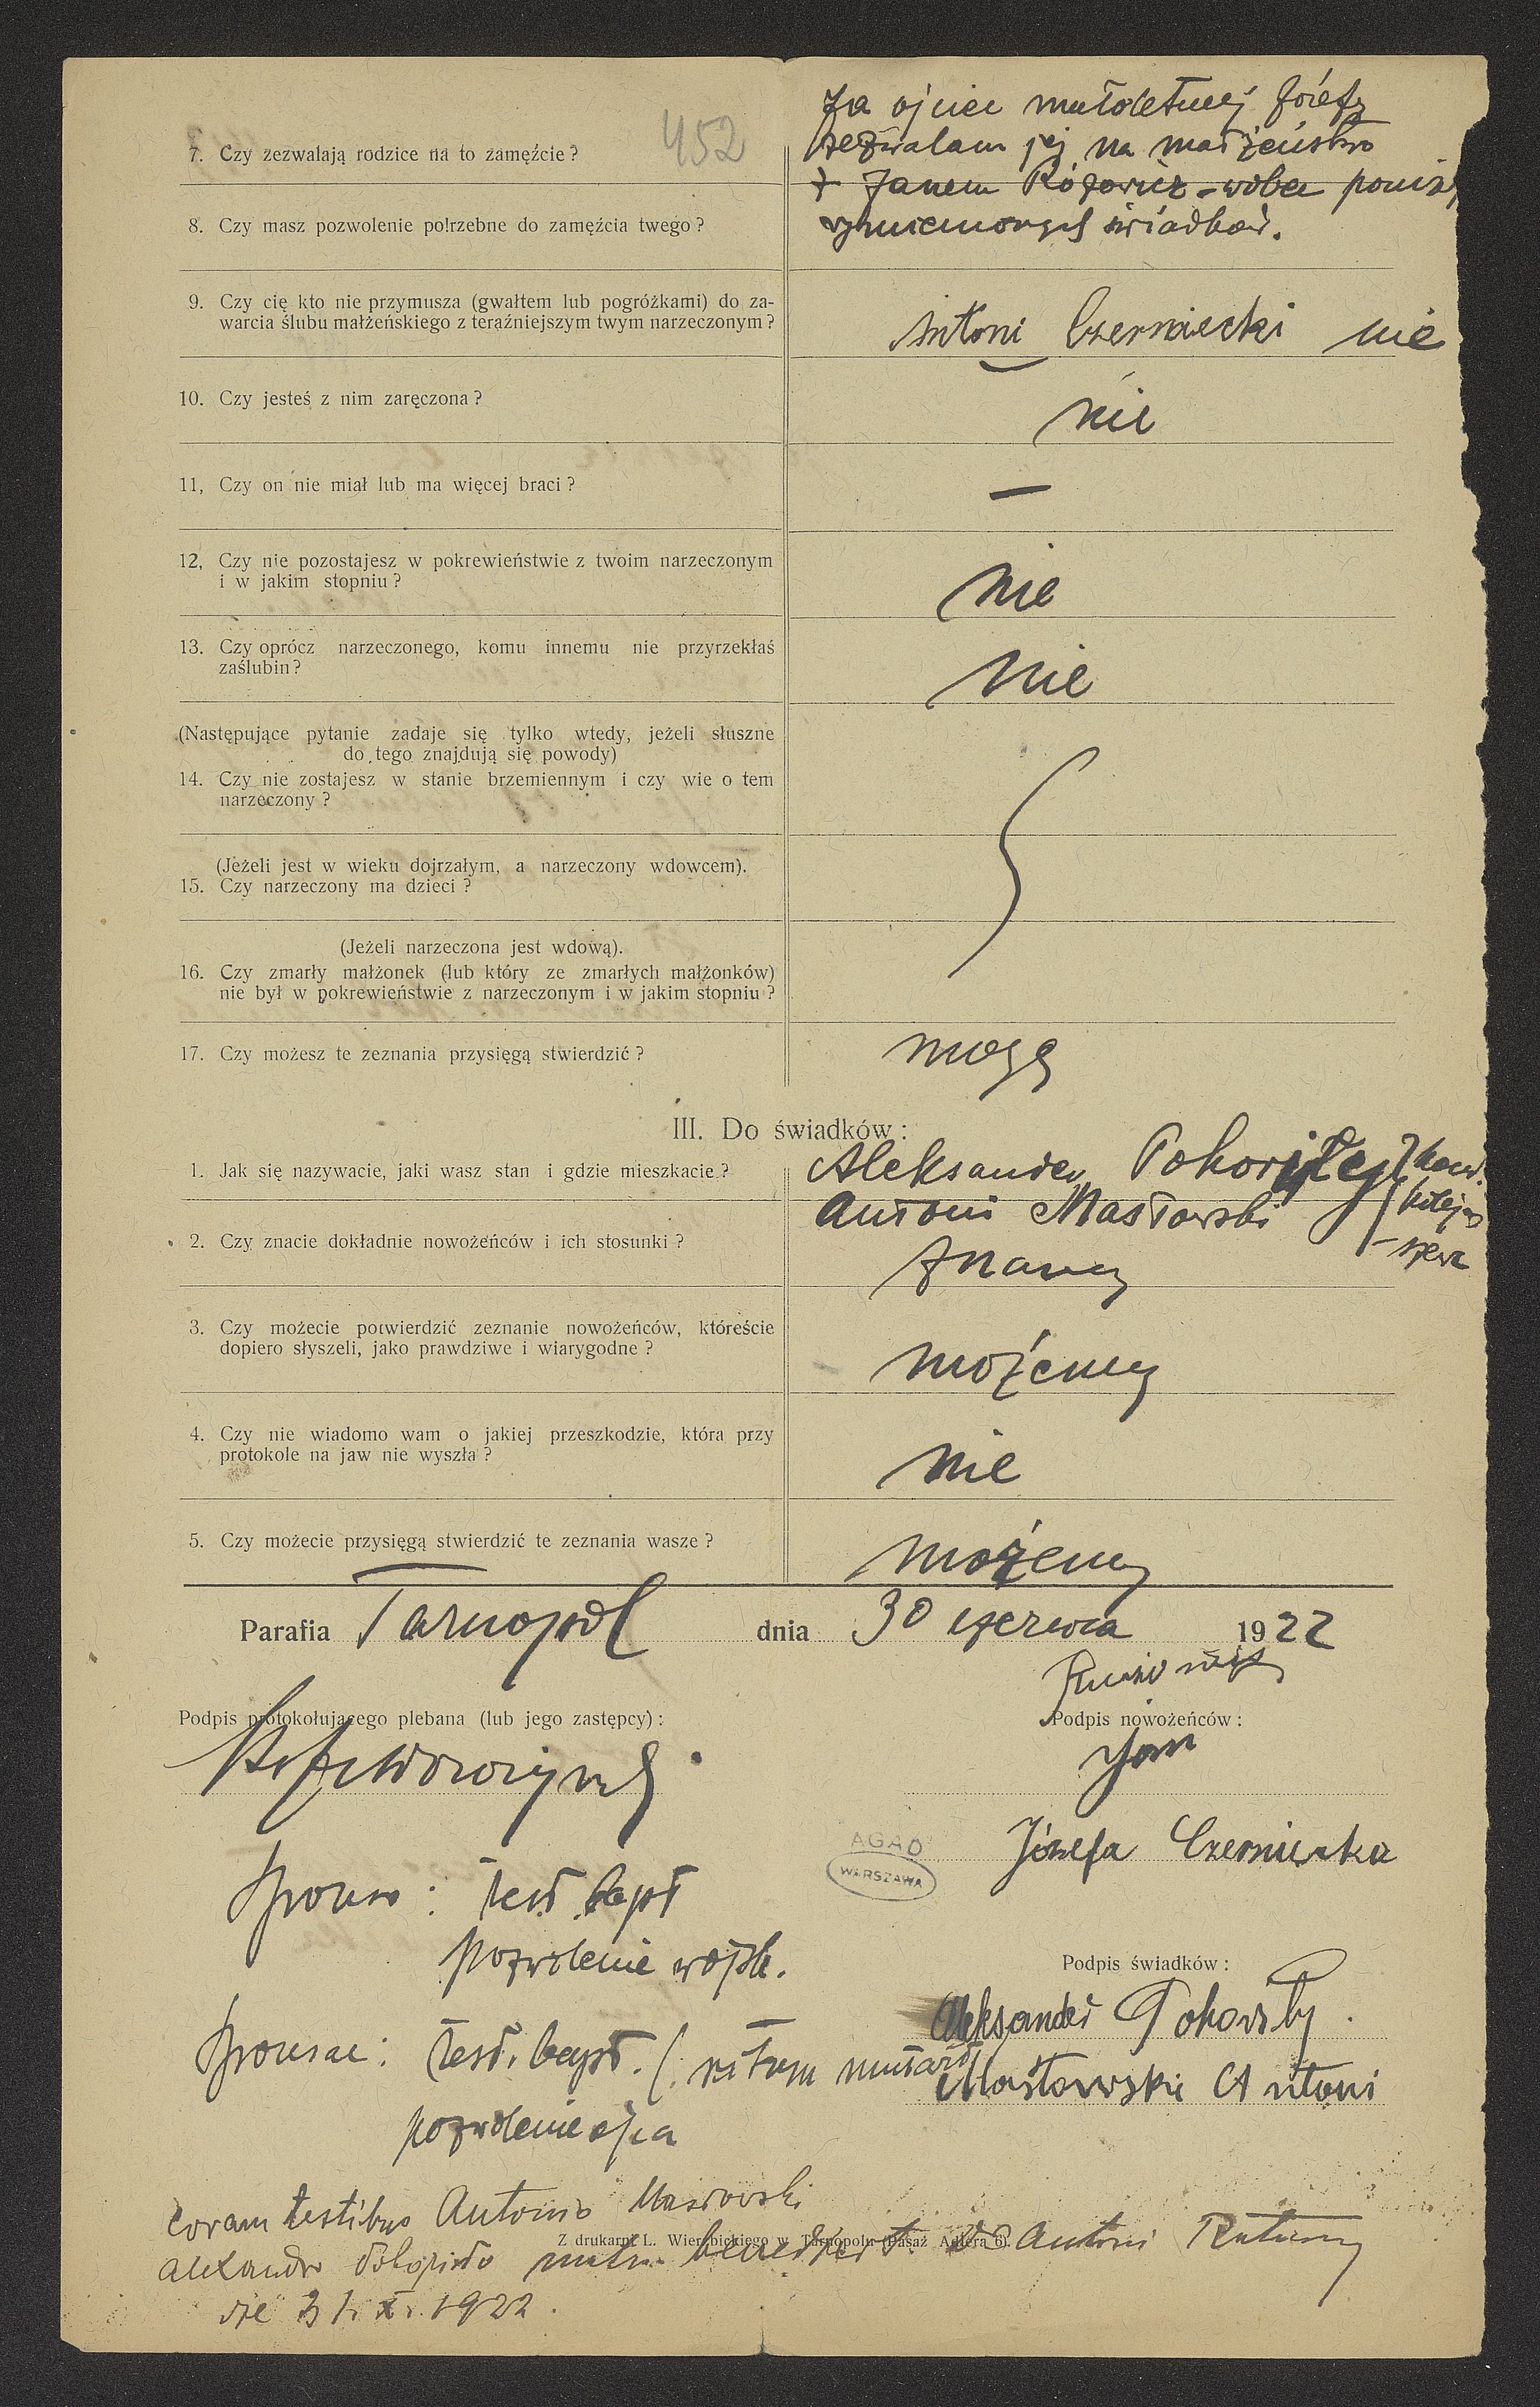 452
Ja ojciec małoletniej Józefy
7. Czy zezwalają rodzice na to zamęźcie?
zezwalam jej na małżeństwo
z Janem Różowicz - wobec poniżej
8. Czy masz pozwolenie potrzebne do zamęźcia twego?
wymienionych świadków.
9. Czy cię kto nie przymusza (gwałtem lub pogróżkami) do za-
warcia ślubu małżeńskiego z teraźniejszym twym narzeczonym?
Antoni Czerniecki nie
10. Czy jesteś z nim zaręczona?
nie
11, Czy on nie miał lub ma więcej braci?
—
12, Czy nie pozostajesz w pokrewieństwie z twoim narzeczonym
i w jakim stopniu?
nie
13. Czy oprócz narzeczonego, komu innemu nie przyrzekłaś
zaślubin?
nie
(Następujące pytanie zadaje się tylko wtedy, jeżeli słuszne
do tego znajdują się powody)
14. Czy nie zostajesz w stanie brzemiennym i czy wie o tem
narzeczony?
(Jeżeli jest w wieku dojrzałym, a narzeczony wdowcem).
15. Czy narzeczony ma dzieci?
(Jeżeli narzeczona jest wdową).
16. Czy zmarły małżonek (lub który ze zmarłych małżonków)
nie był w pokrewieństwie z narzeczonym i w jakim stopniu?
17. Czy możesz te zeznania przysięgą stwierdzić?
mogę
III. Do świadków:
1. Jak się nazywacie, jaki wasz stan i gdzie mieszkacie?
Aleksander
Antoni Masłowski
2. Czy znacie dokładnie nowożeńców i ich stosunki?
znamy
3. Czy możecie potwierdzić zeznanie nowożeńców, któreście
dopiero słyszeli, jako prawdziwe i wiarygodne?
możemy
4. Czy nie wiadomo wam o jakiej przeszkodzie, która przy
protokole na jaw nie wyszła?
nie
5. Czy możecie przysięgą stwierdzić te zeznania wasze?
możemy
Parafia Tarnopol dnia 30 czerwca 1922
Podpis protokołującego plebana (lub jego zastępcy):
Podpis nowożeńców:
Jan
Józefa Czerniecka
AGAD
WARSZAWA
Sponso: test. bapt
pozwolenie wojsk.
Podpis świadków:
Aleksander
Sponsae: test. bapt. (
Masłowski Antoni
pozwolenie ojca
Coram testibus Antonio Masłowski
Z drukarni L. Wierzbickiego w Tarnopolu (Pasaż Adlera 6).
Alexandro
die 1922.